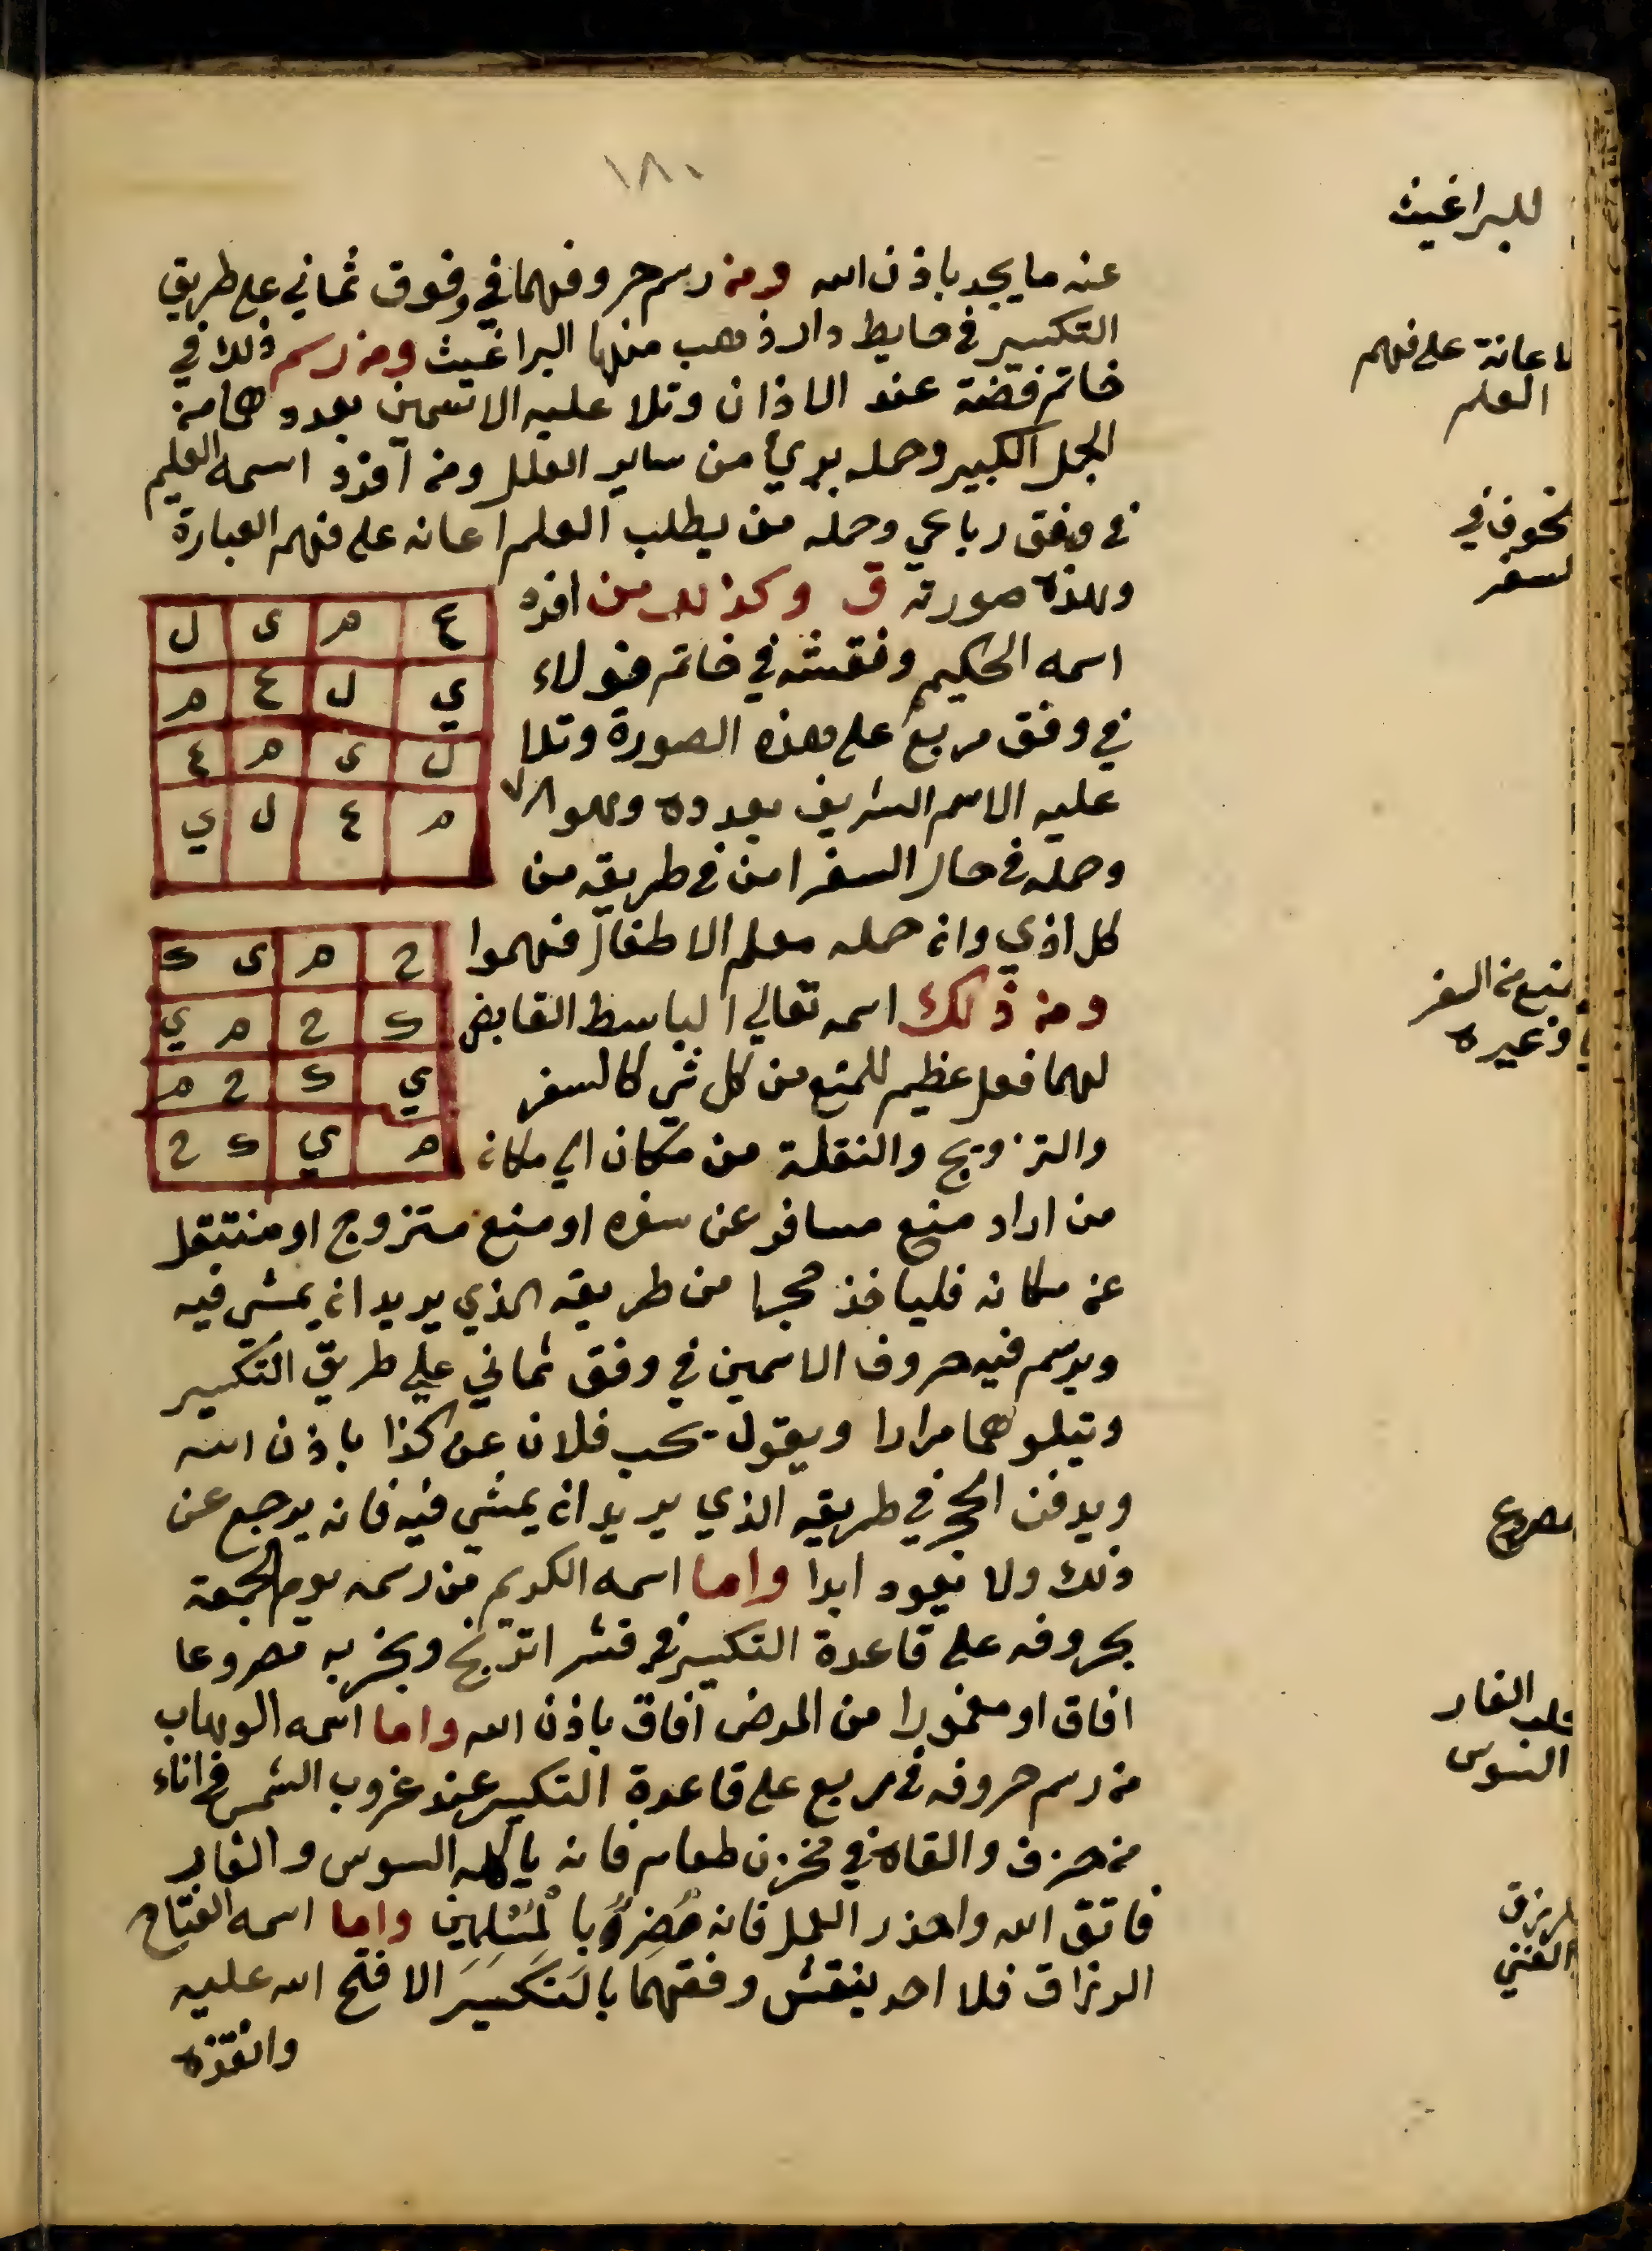 ١٨٠
للبراغيث
عنه ما يجد باذن الله ومن رسم حروفهما في وفوق ثماني على طريق
التكسير في حايط دار ذهب منها البراغيث ومن رسم ذلك في
خاتم فضة عند الاذان وتلا عليه الاسمين بعددهما من
الجمل الكبير وحمله بري من ساير العلل ومن افرد اسمه العليم
في وفق رباعي وحمله من يطلب العلم اعانه على فهم العبارة
وهذه صورته ق وكذلك من افرد
اسمه الحكيم ونقشه في خاتم فولاء
في وفق مربع على هذه الصورة وتلا
عليه الاسم الشريف بعدده وهو ٧٨
وحمله في حال السفر امن في طريقه من
كل اذي وان حمله معلم الاطفال فهموا
ومن ذلك اسمه تعالي الباسط القابض
لهما فعل عظيم للمنع من كل شي كالسفر
والتزويج والنقلة من مكان الي مكان
من اراد منع مسافر عن سفره او منع متزوج او منتقل
عن مكانه فلياخذ حجرا من طريقه الذي يريد ان يمشي فيه
ويرسم فيه حروف الاسمين في وفق ثماني علي طريق التكسير
ويتلوهما مرارا ويقول فلان عن كذا باذن الله
ويدفن الحجر في طريقه الذي يريد ان يمشي فيه فانه يرجع عن
ذلك ولا يعود ابدا واما اسمه الكريم من رسمه يوم الجمعة
بحروفه على قاعدة التكسير في قشر اترنج وبخر به مصروعا
افاق او مغمورا من المرض افاق باذن الله واما اسمه الوهاب
من رسم حروفه في مربع على قاعدة التكسير عند غروب الشمس في اناء
من خزف والقاه في مخزن طعام فانه ياكله السوس والفار
فاتق الله واحذر العمل فانه مُضِرٌ با لْمُسْلِمِينَ واما اسمه الفتاح
الرزاق فلا احد ينقش وفقهما بالتكسير الا فتح الله عليه
وانقذه
ع م ى ل
ي ل ع م
ل ى م ع
م ع ل ي
ح م ى ك
ك ح م ي
ي ك ح م
م ي ك ح
لاعانة على فهم
العلم
لخوف في
لسفر
منع من السفر
وغيره
مصروع
الفار
السوس
الغني